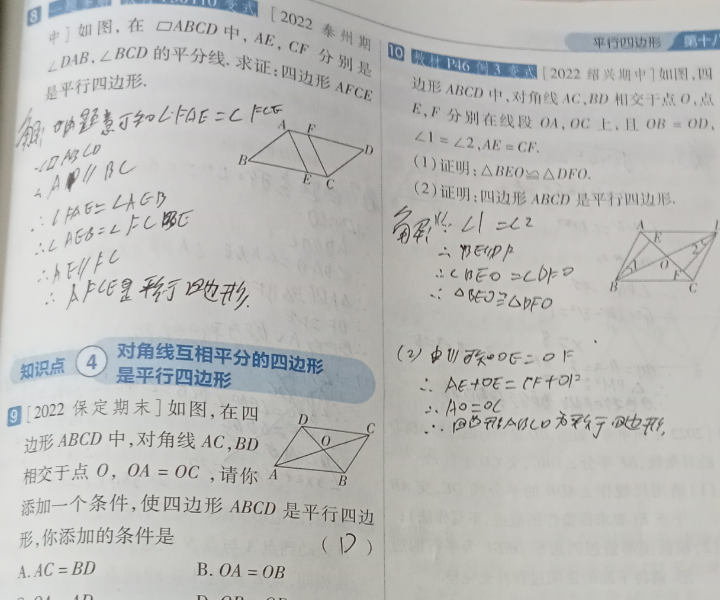 8
[2022 泰州期
中]如图,在 ▱ABCD 中,AE,CF 分别是
∠DAB,∠BCD 的平分线.求证:四边形 AFCE
是平行四边形.
解:由题意可知∠FAE=∠FCE
▱ABCD
∴AD∥BC
∴∠FAE=∠AEB
∴∠AEB=∠FCE
∴AE∥FC
∴AFCE是平行四边形.
A F
D
B
E C
知识点 4 对角线互相平分的四边形
是平行四边形
9 [2022 保定期末]如图,在四
边形 ABCD 中,对角线 AC,BD
相交于点 O,OA=OC,请你
添加一个条件,使四边形 ABCD 是平行四边
形,你添加的条件是 (D)
A.AC=BD B.OA=OB
D
C
O
A
B
平行四边形 第十八
10 教材 P46 例 3 变式 [2022 绍兴期中]如图,四
边形 ABCD 中,对角线 AC,BD 相交于点 O,点
E,F 分别在线段 OA,OC 上,且 OB=OD,
∠1=∠2,AE=CF.
(1)证明:△BEO≌△DFO.
(2)证明:四边形 ABCD 是平行四边形.
解:(1)∵∠1=∠2
∴BE∥DF
∴∠BEO=∠DFO
∴△BEO≌△DFO
A
E
2
1 O
F
B C
(2)由(1)可知OE=OF
∴AE+OE=CF+OF
∴AO=OC
∴四边形ABCD为平行四边形.